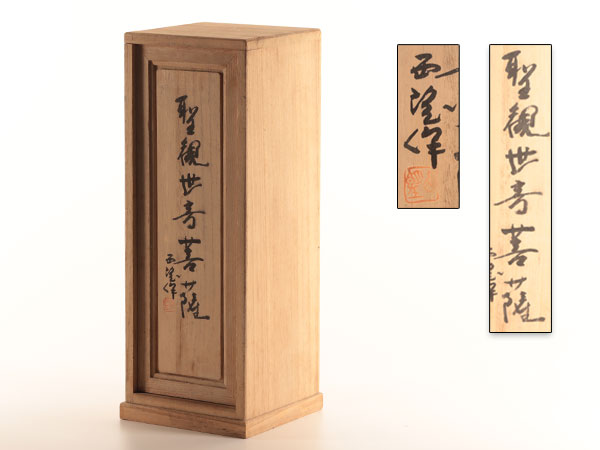 聖観世音菩薩
西望作
西望作
聖観世音菩薩
西望作